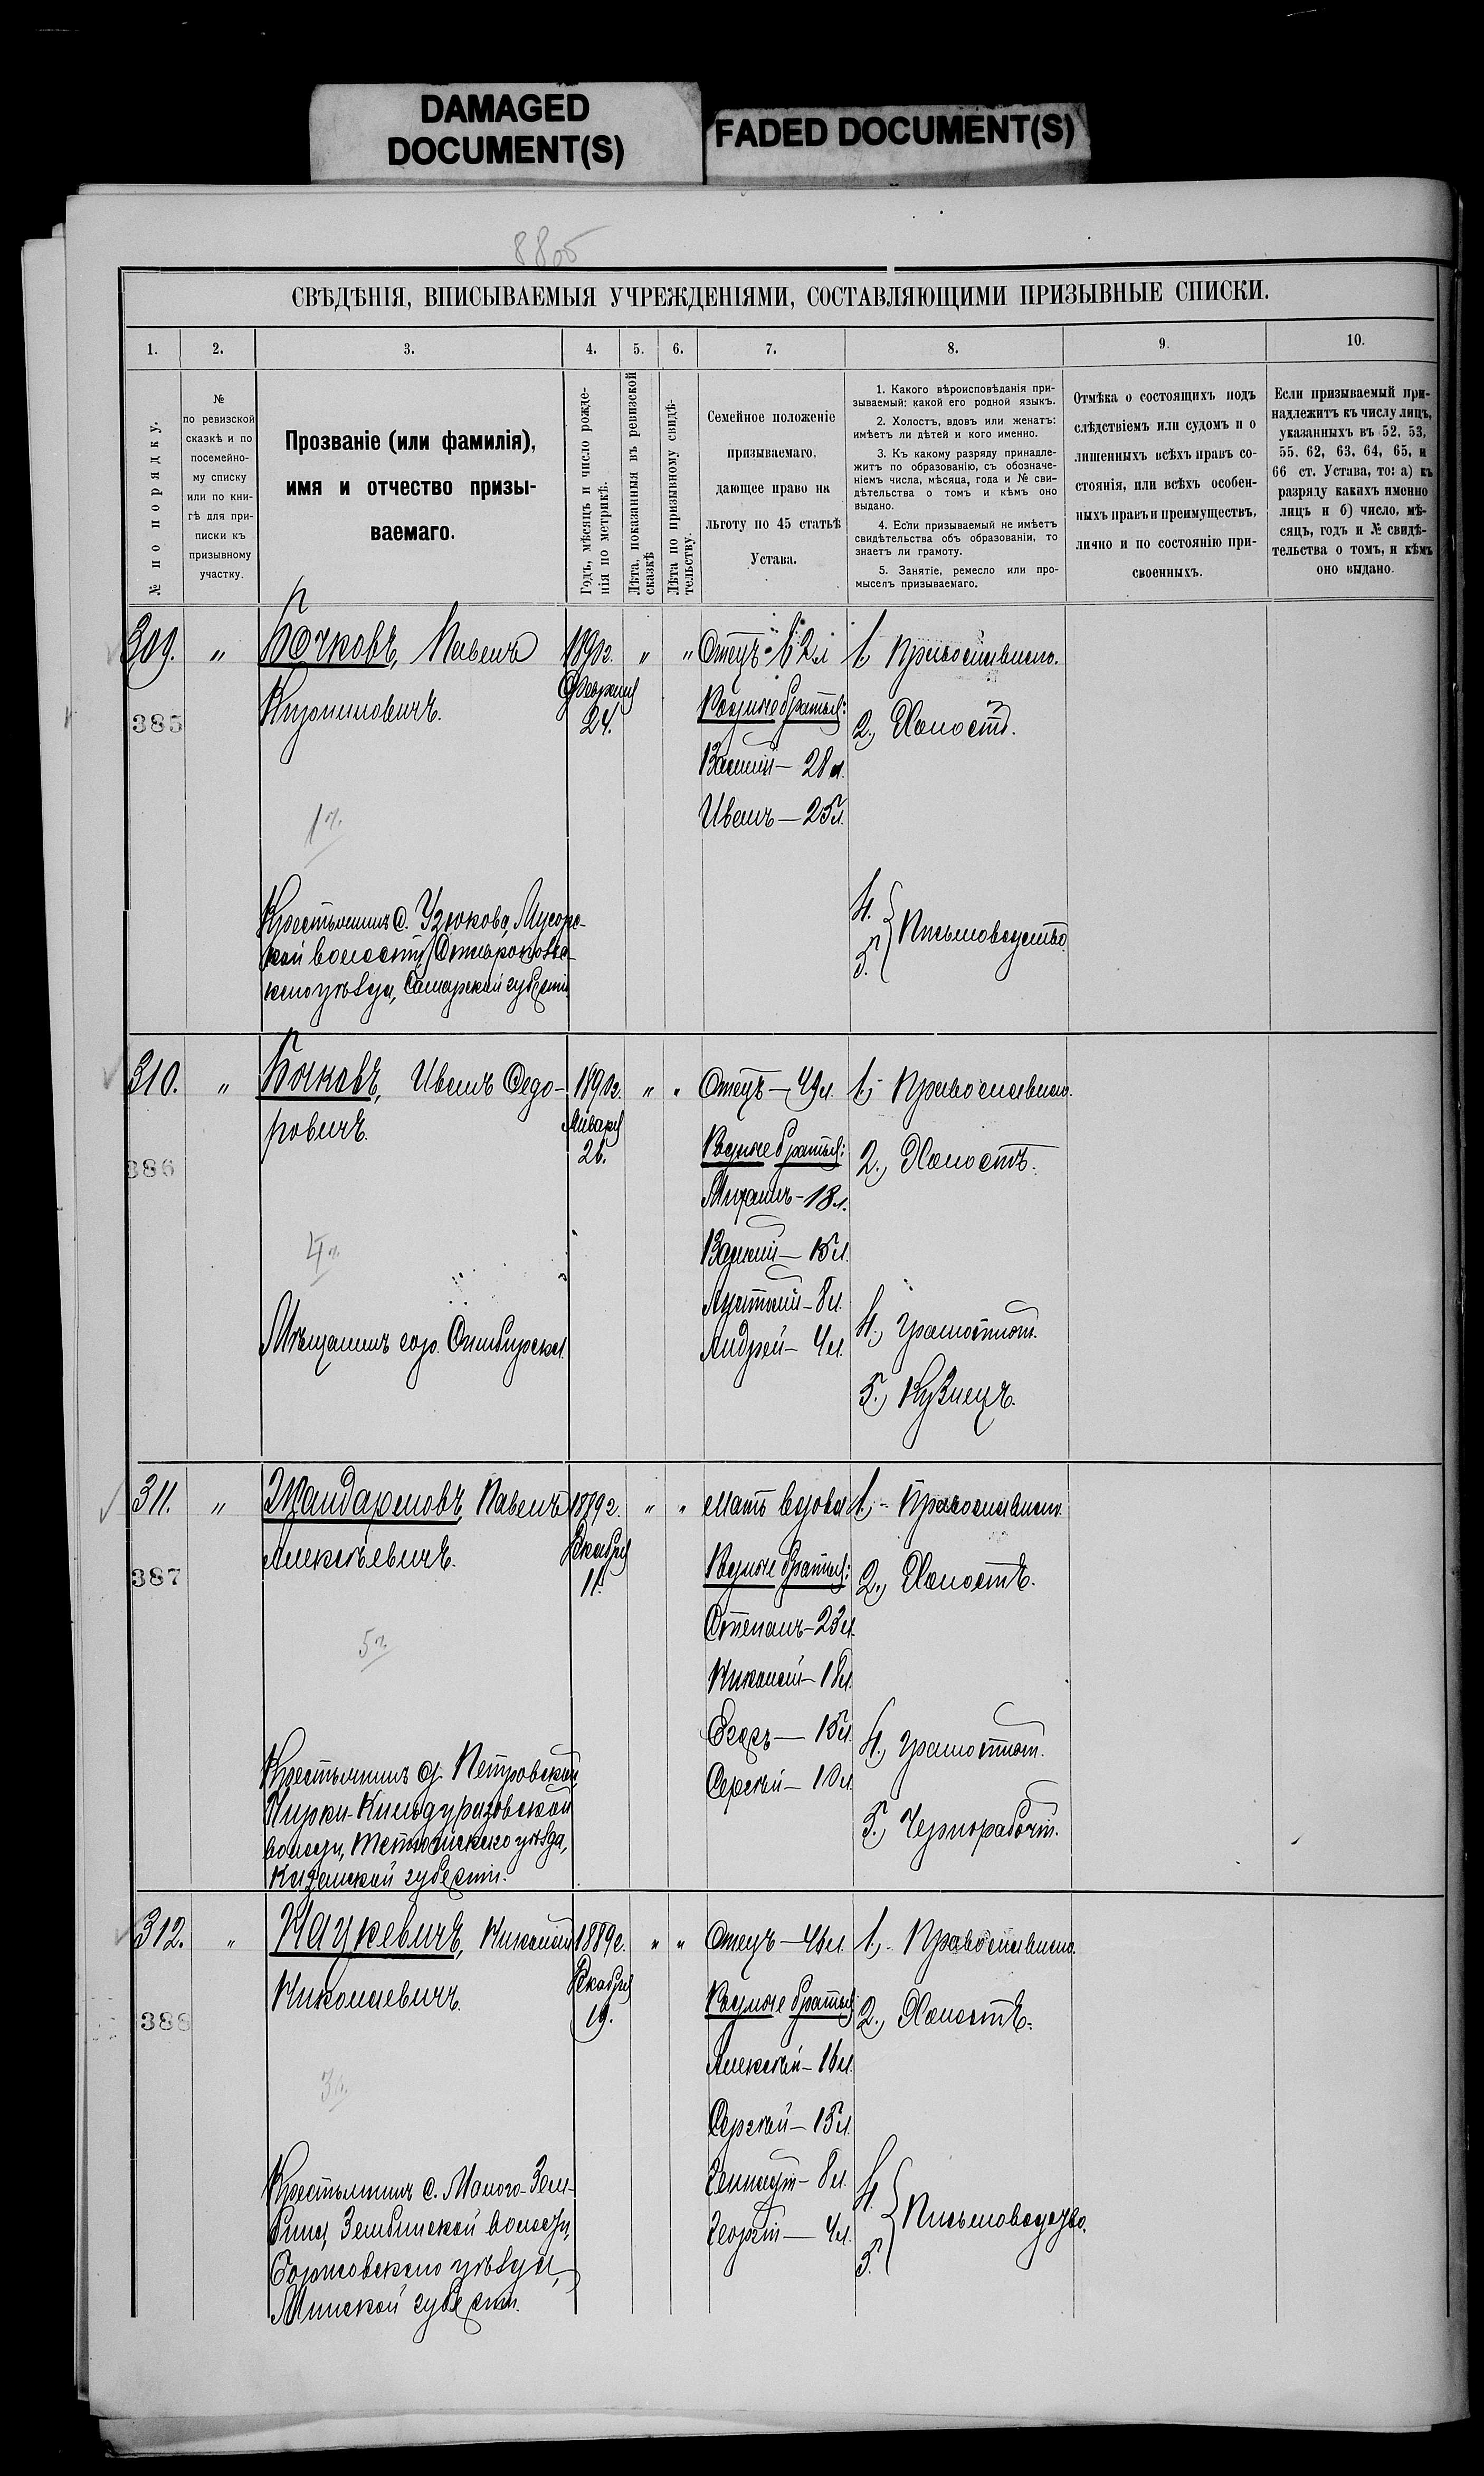 DAMAGED
DOCUMENT(S)
FADED DOCUMENT(S)
88об
СВѢДѢНІЯ, ВПИСЫВАЕМЫЯ УЧРЕЖДЕНІЯМИ, СОСТАВЛЯЮЩИМИ ПРИЗЫВНЫЕ СПИСКИ.
1. 2. 3. 4. 5. 6. 7. 8. 9. 10.
№ по порядку.
№
по ревизской
сказкѣ и по
посемейно-
му списку
или по кни-
гѣ для при-
писки къ
призывному
участку.
Прозваніе (или фамилія),
имя и отчество призы-
ваемаго.
Годъ, мѣсяцъ и число рожде-
нія по метрикѣ.
Лѣта, показанныя въ ревизской
сказкѣ
Лѣта по призывному свидѣ-
тельству.
Семейное положеніе
призываемаго,
дающее право на
льготу по 45 статьѣ
Устава.
1. Какого вѣроисповѣданія при-
зываемый: какой его родной языкъ.
2. Холостъ, вдовъ или женатъ:
имѣетъ ли дѣтей и кого именно.
3. Къ какому разряду принадле-
житъ по образованію, съ обозначе-
ніемъ числа, мѣсяца, года и № сви-
дѣтельства о томъ и кѣмъ оно
выдано.
4. Если призываемый не имѣетъ
свидѣтельства объ образованіи, то
знаетъ ли грамоту.
5. Занятіе, ремесло или про-
мыселъ призываемаго.
Отмѣка о состоящихъ подъ
слѣдствіемъ или судомъ и о
лишенныхъ всѣхъ правъ со-
стоянія, или всѣхъ особен-
ныхъ правъ и преимуществъ,
лично и по состоянію при-
своенныхъ.
Если призываемый при-
надлежитъ къ числу лицъ,
указанныхъ въ 52, 53,
55, 62, 63, 64, 65, и
66 ст. Устава, то: а) къ
разряду какихъ именно
лицъ и б) число, мѣ-
сяцъ, годъ и № свидѣ-
тельства о томъ, и кѣмъ
оно выдано.
309. " Бочковъ, Павелъ
Кирилловичъ.
385
1890г.
Февраля
24.
" "
Отецъ - 62л
Родные братья:
Василій - 28л.
Иванъ - 25л.
1, Православнаго.
2., Холостъ.
4.
5. } Письмоводство
Крестьянинъ с. Узюкова, Мусорс-
кой волости, Ставропольс-
каго уѣзда, Самарской губерніи.
310. " Бычковъ, Иванъ Федо-
ровичъ.
386
1890г.
Января
26.
" "
Отецъ - 49л.
Родные братья:
Михаилъ - 18л.
Василій - 15л.
Анатолій - 8л.
Андрей - 4л.
1,- Православнаго.
2., Холостъ.
4., Грамотный.
5., Кузнецъ.
Мѣщанинъ гор. Симбирска.
311. " Жандармовъ, Павелъ
Алексѣевичъ.
387
1889г.
Декабря
11.
" "
Мать вдова
Родные братья:
Степанъ - 23л.
Николай - 18л.
Егоръ - 15л.
Сергѣй - 10л.
1,- Православный.
2., Холостъ.
4., Грамотный.
5., Чернорабочій.
Крестьянинъ д. Петровской,
Кирки-Кильдуразовской
волости, Тетюшскаго уѣзда,
Казанской губерніи.
312. " Нацкевичъ, Николай
Николаевичъ.
388
1889г.
Декабря
19.
" "
Отецъ - 46л.
Родные братья
Алексѣй - 16л.
Сергѣй - 15л.
Геннадій - 8л.
Георгій - 4л.
1,- Православнаго.
2., Холостъ.
4.
5. } Письмоводство.
Крестьянинъ с. Малого-Зем-
бина, Зембинской волости,
Борисовскаго уѣзда,
Минской губерніи.